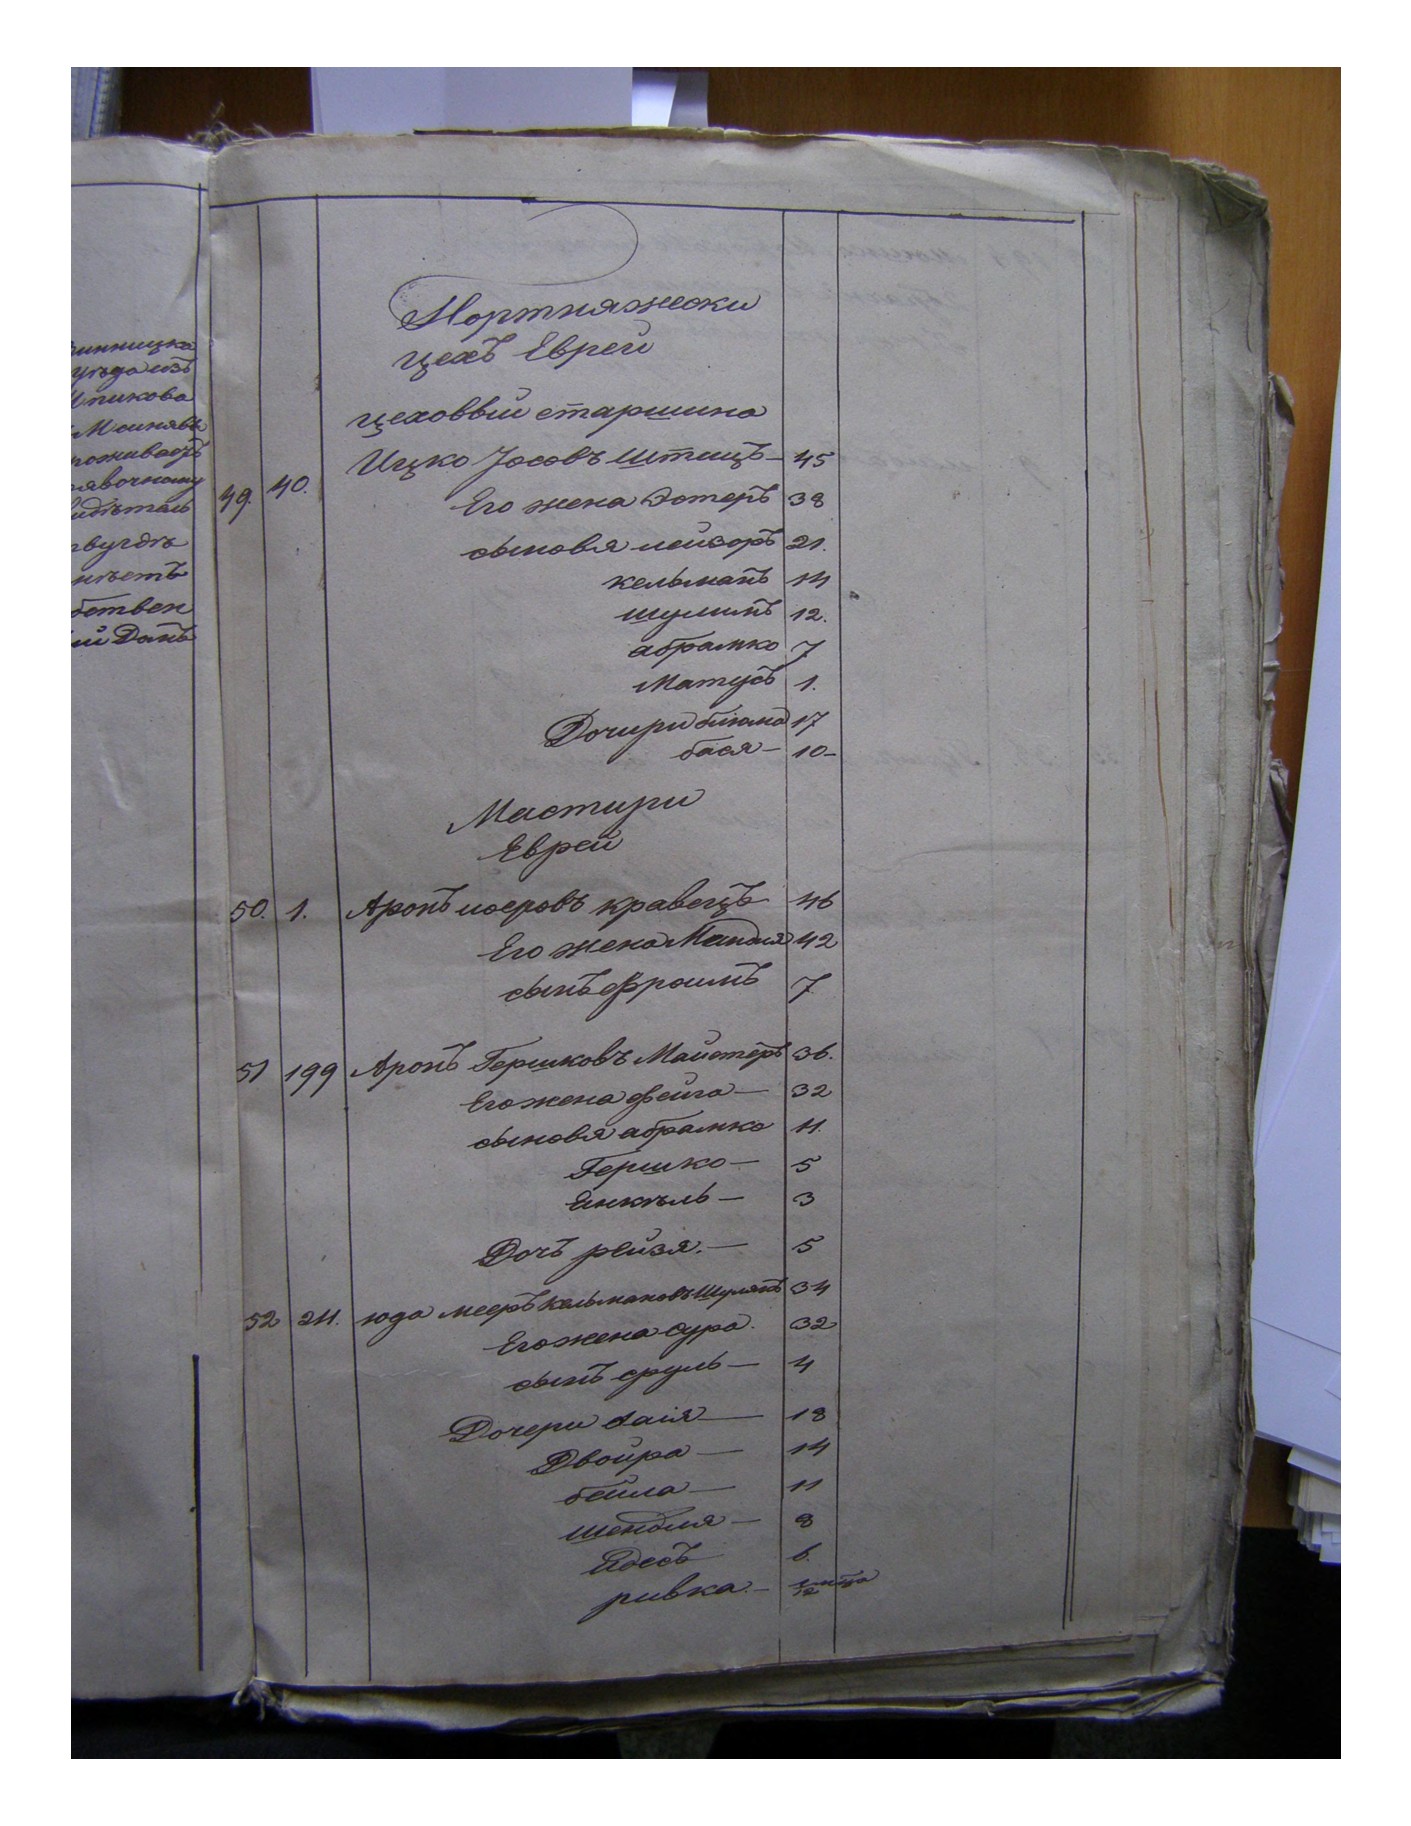 винницка
уѣзда изъ
Шпикова
проживаетъ
явочному
Портняжески
Цехъ Еврей
Цеховвый старшина
49. 40. Ицко Іосовъ Штицъ — 45
Его жена Эстеръ 38
сыновья лейзоръ 21.
кельманъ 14
шулимъ 12.
абрамко 7
Матусъ 1.
Дочири блюма 17
бася — 10 —
Мастири
Еврей
50. 1. Аронъ иосровъ кравецъ 46
Его жена Мандля 42
сынъ Фроимъ 7
51 199 Аронъ Гершковъ Майстеръ 36.
Его жена фейга — 32
сыновя абрамко 11.
Гершко — 5
Янкѣль — 3
Дочъ рейзя. — 5
52 211. юда мееръ Кельмановъ Шулякъ 34
Его жена сура. 32
сынъ сруль — 4
Дочери хаія — 18
Двойра — 14
бейла — 11
шендля — 8
Адесъ 6.
ривка. —